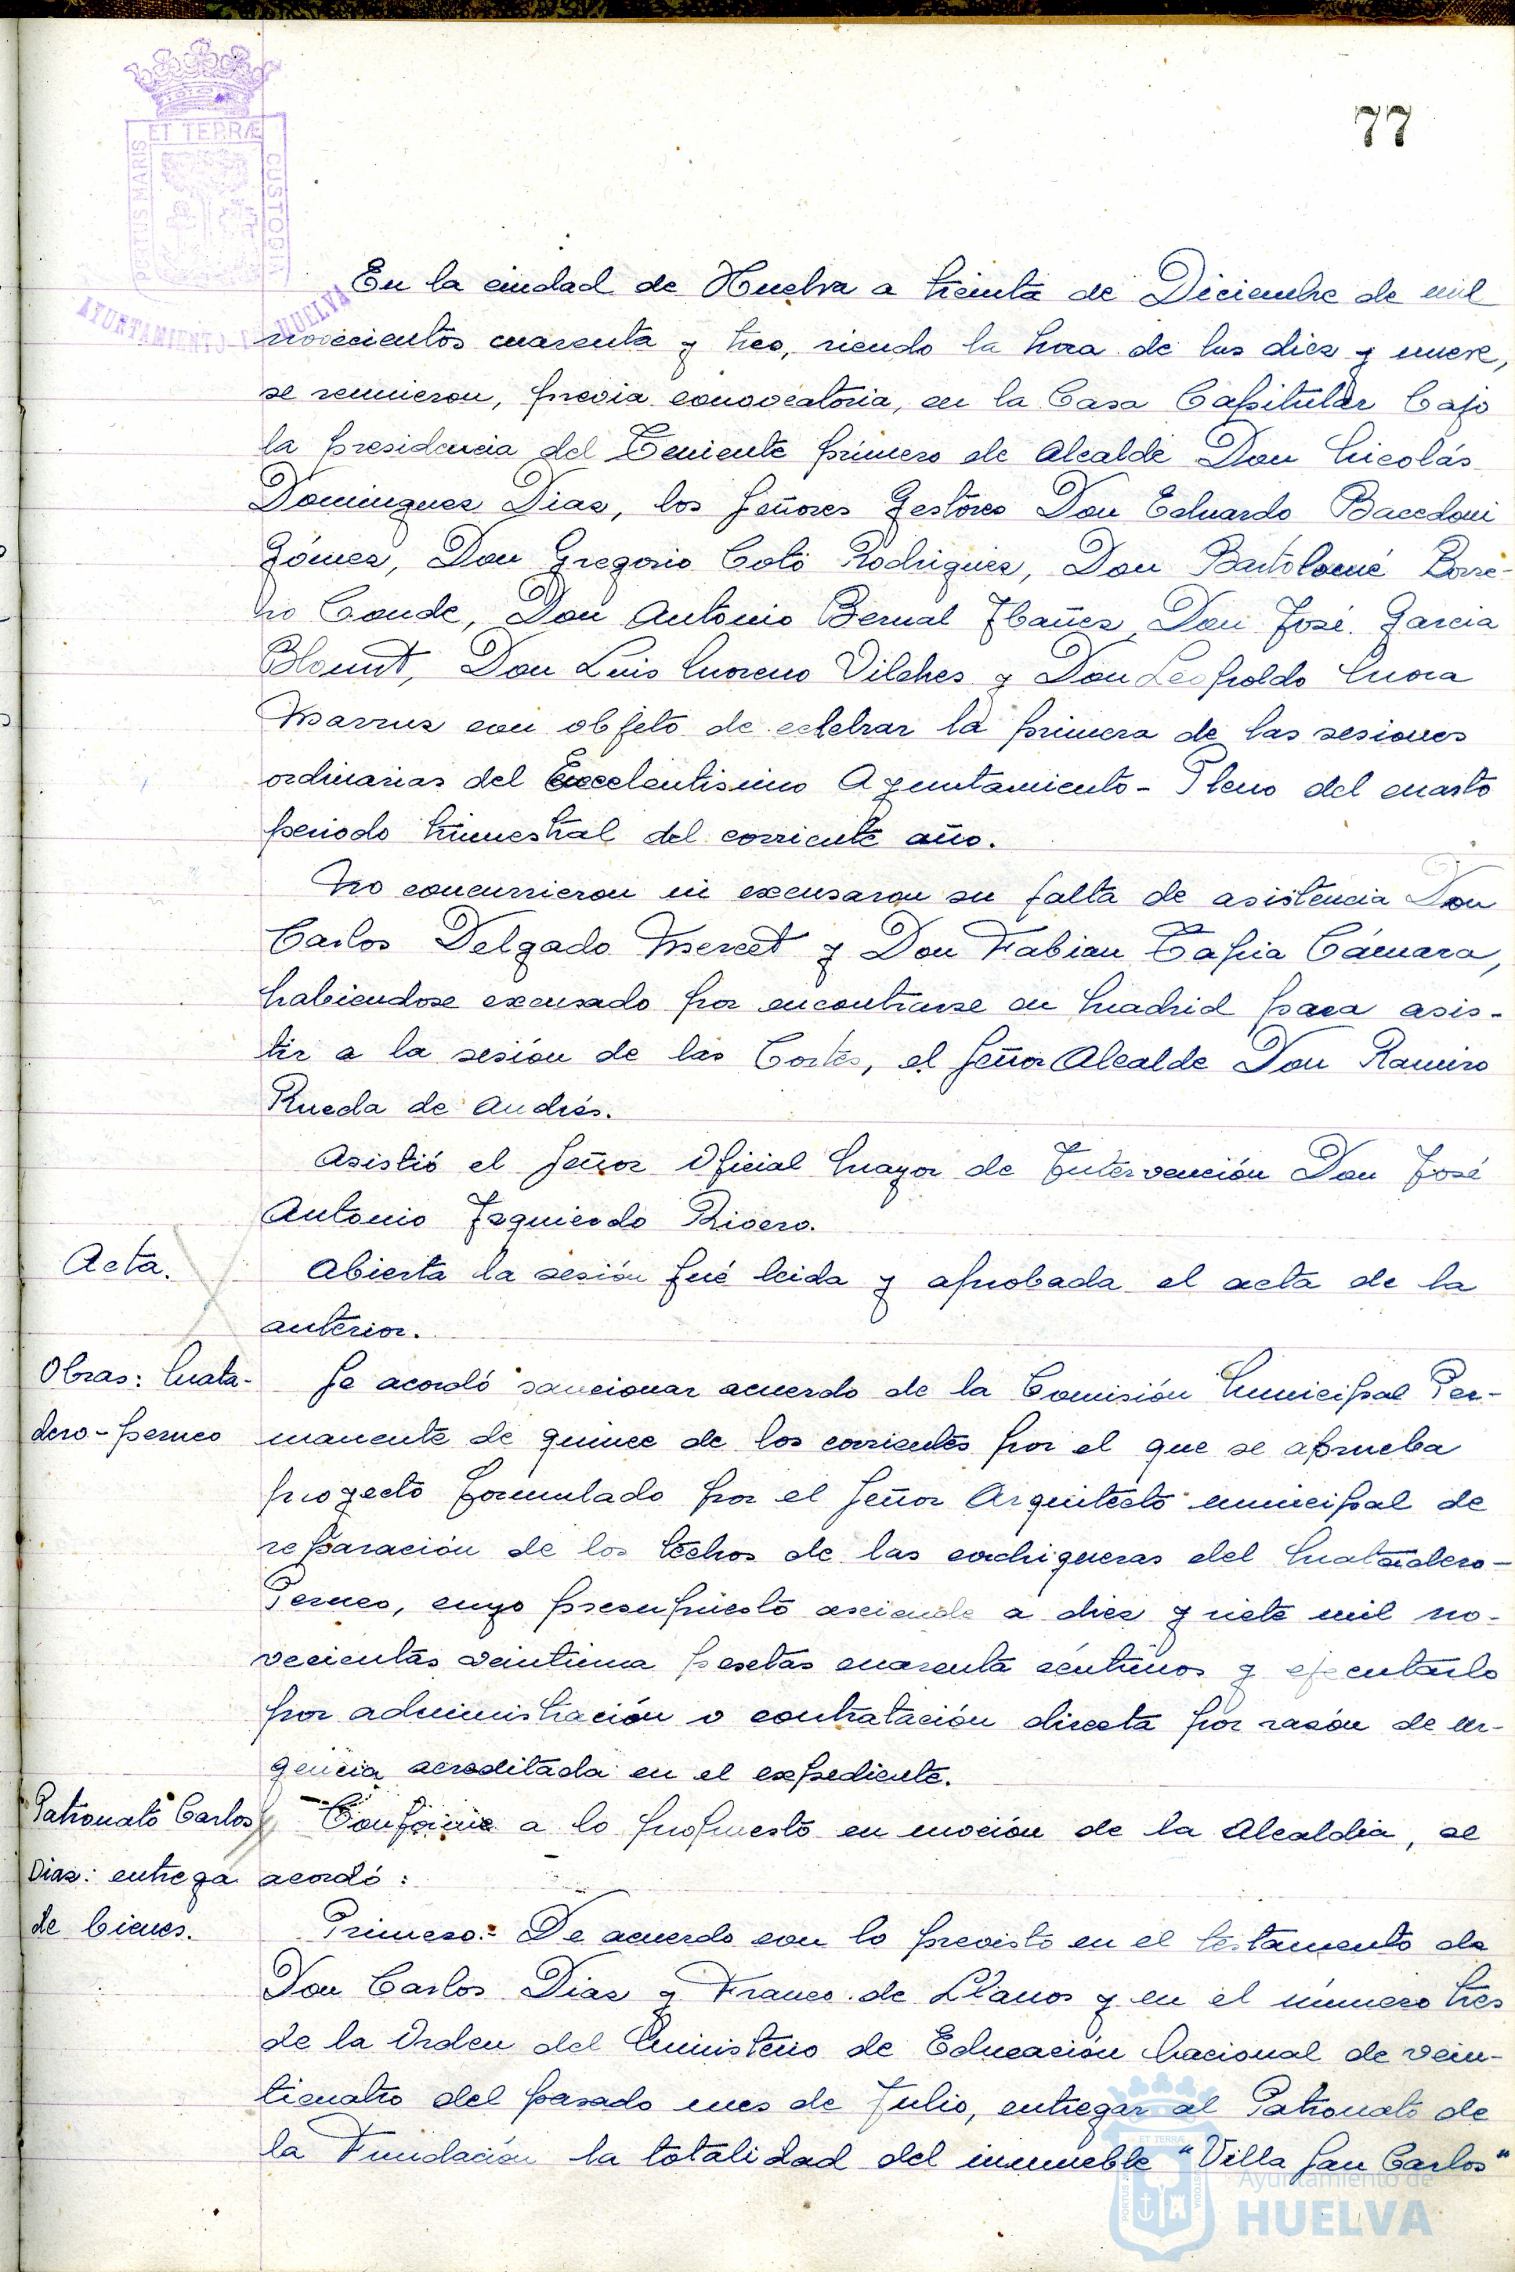 77
PORTUS MARIS
ET TERRÆ
CUSTODIA
AYUNTAMIENTO DE HUELVA
En la ciudad de Huelva a treinta de Diciembre de mil
novecientos cuarenta y tres, siendo la hora de las diez y nueve,
se reunieron, previa convocatoria, en la Casa Capitular bajo
la presidencia del Teniente primero de Alcalde Don Nicolás
Dominguez Diaz, los Señores Gestores Don Eduardo Bacedoni
Gómez, Don Gregorio Coto Rodriguez, Don Bartolomé Borre-
ro Conde, Don Antonio Bernal Ibañez, Don José Garcia
Blount, Don Luis Moreno Vilches y Don Leopoldo Mora
Marruz con objeto de celebrar la primera de las sesiones
ordinarias del Excelentisimo Ayuntamiento-Pleno del cuarto
periodo trimestral del corriente año.
No concurrieron ni excusaron su falta de asistencia Don
Carlos Delgado Mercet y Don Fabian Tapia Cámara,
habiendose excusado por encontrarse en Madrid para asis-
tir a la sesión de las Cortes, el Señor Alcalde Don Ramiro
Rueda de Andrés.
Asistió el Señor Oficial Mayor de Intervención Don José
Antonio Izquierdo Rivero.
Acta.
Abierta la sesión fué leida y aprobada el acta de la
anterior.
Obras: Mata-
dero-perneo
Se acordó sancionar acuerdo de la Comisión Municipal Per-
manente de quince de los corrientes por el que se aprueba
proyecto formulado por el Señor Arquitecto municipal de
reparación de los techos de las cochiqueras del Matadero-
Perneo, cuyo presupuesto asciende a diez y siete mil no-
vecientas veintiuna pesetas cuarenta céntimos y ejecutarlo
por administración o contratación directa por razón de ur-
gencia acreditada en el expediente.
Patronato Carlos
Diaz: entrega
de bienes.
Conforme a lo propuesto en moción de la Alcaldia, se
acordó:
Primero.- De acuerdo con lo previsto en el testamento de
Don Carlos Diaz y Franco de Llanos y en el número tres
de la Orden del Ministerio de Educación Nacional de vein-
ticuatro del pasado mes de Julio, entregar al Patronato de
la Fundación la totalidad del inmueble "Villa San Carlos"
Ayuntamiento de
HUELVA